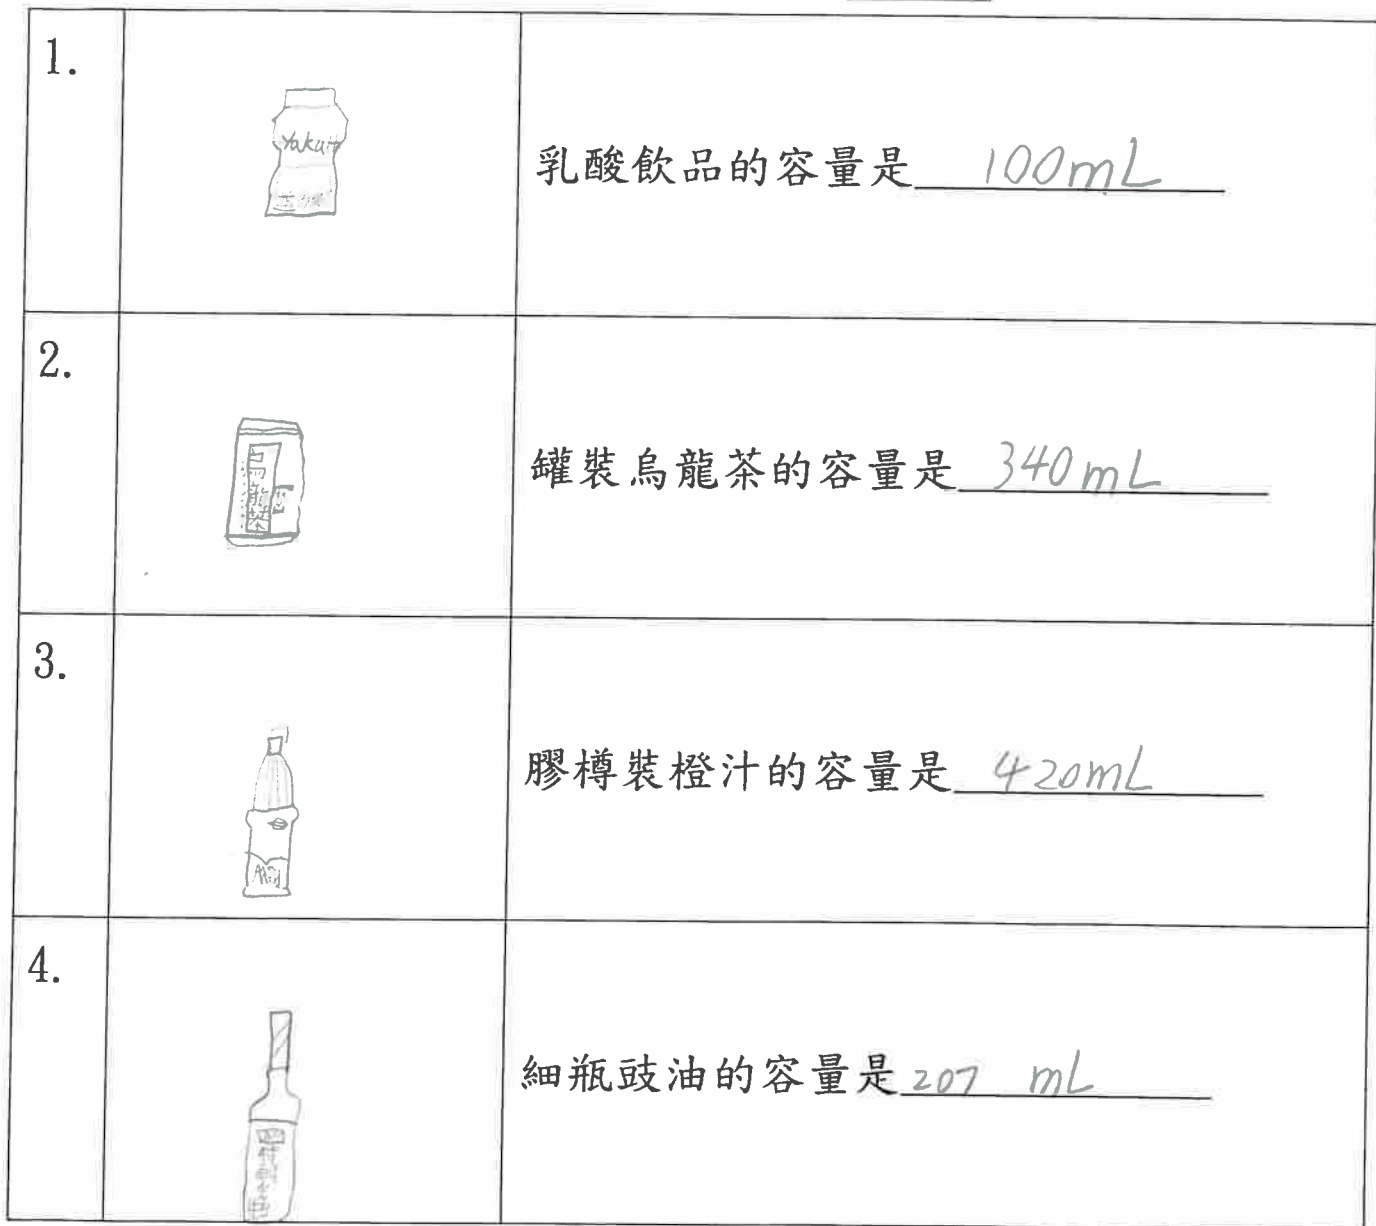 1.
Yakult
乳酸飲品的容量是 100mL
2.
烏龍茶
罐裝烏龍茶的容量是 340mL
3.
膠樽裝橙汁的容量是 420mL
4.
細瓶豉油的容量是 207 mL